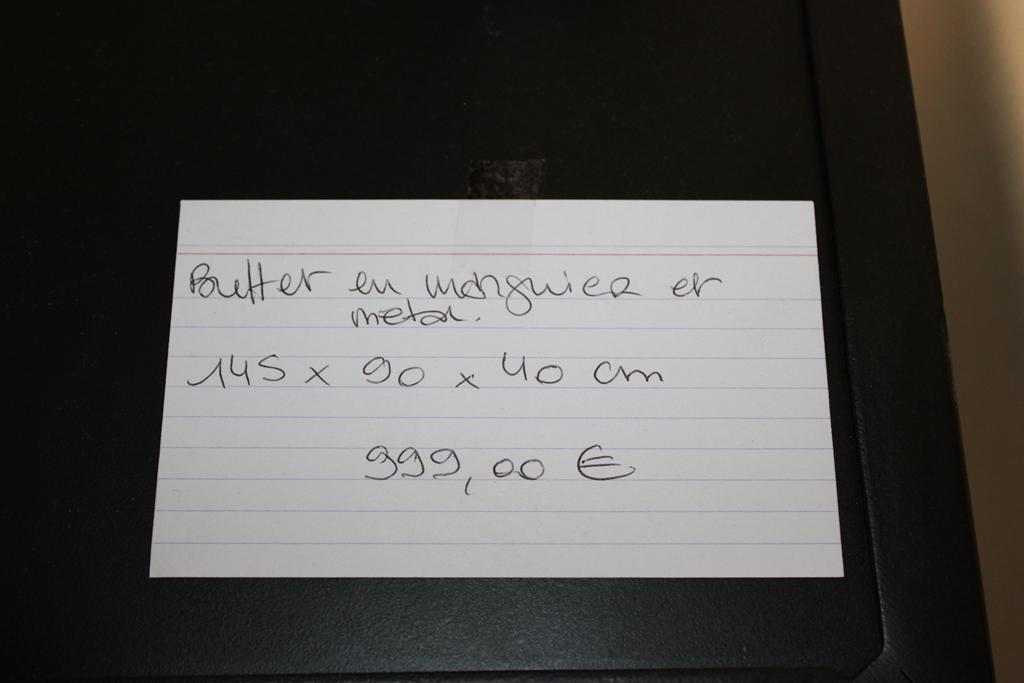 Buffet en manguier et
metal.
145 x 90 x 40 cm
999,00 €